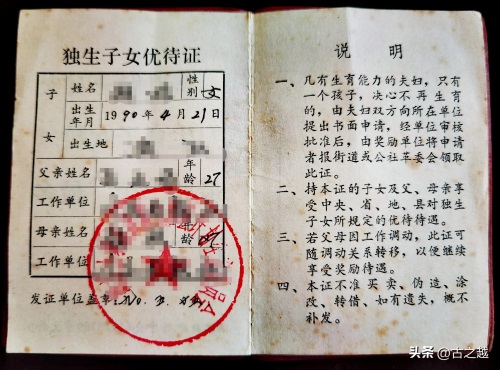 独生子女优待证
子 姓名 性别 女
出生年月 1990年4月21日
女 出生地
父亲姓名 年龄 27
工作单位
母亲姓名 年龄
工作单位
发证单位盖章:
说明
一、凡有生育能力的夫妇，只有
一个孩子，决心不再生育
的，由夫妇双方向所在单位
提出书面申请，经单位审核
批准后，由奖励单位将申请
者报街道或公社革委会领取
此证。
二、持本证的子女及父、母亲享
受中央、省、地、县对独生
子女所规定的优待待遇。
三、若父母因工作调动，此证可
随调动关系转移，以便继续
享受奖励待遇。
四、本证不准买卖、伪造、涂
改、转借、如有遗失，概不
补发。
头条 @古之越